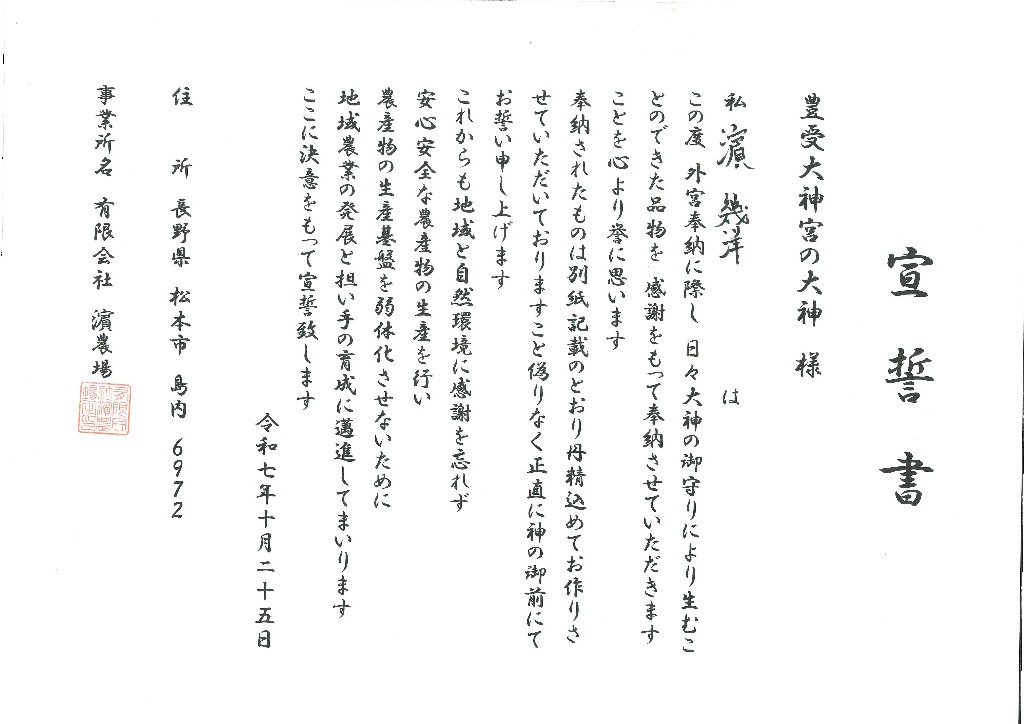 宣誓書
豊受大神宮の大神 様
私 濵 幾洋 は
この度 外宮奉納に際し 日々大神の御守りにより生むこ
とのできた品物を 感謝をもって奉納させていただきます
ことを心より誉に思います
奉納されたものは別紙記載のとおり丹精込めてお作りさ
せていただいておりますこと偽りなく正直に神の御前にて
お誓い申し上げます
これからも地域と自然環境に感謝を忘れず
安心安全な農産物の生産を行い
農産物の生産基盤を弱体化させないために
地域農業の発展と担い手の育成に邁進してまいります
ここに決意をもって宣誓致します
令和七年十月二十五日
住 所 長野県 松本市 島内 6972
事業所名 有限会社 濵農場